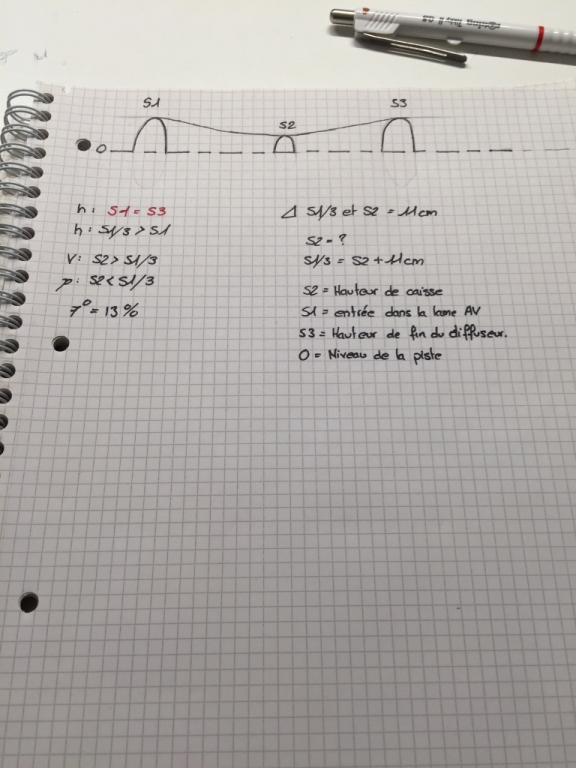 S1
S2
S3
0
h: S1 = S3
h: S1/3 > S1
V: S2 > S1/3
p: S2 < S1/3
7° = 13%
⊿ S1/3 et S2 = 11cm
S2 = ?
S1/3 = S2 + 11cm
S2 = Hauteur de caisse
S1 = entrée dans la lame AV
S3 = Hauteur de fin du diffuseur.
0 = Niveau de la piste